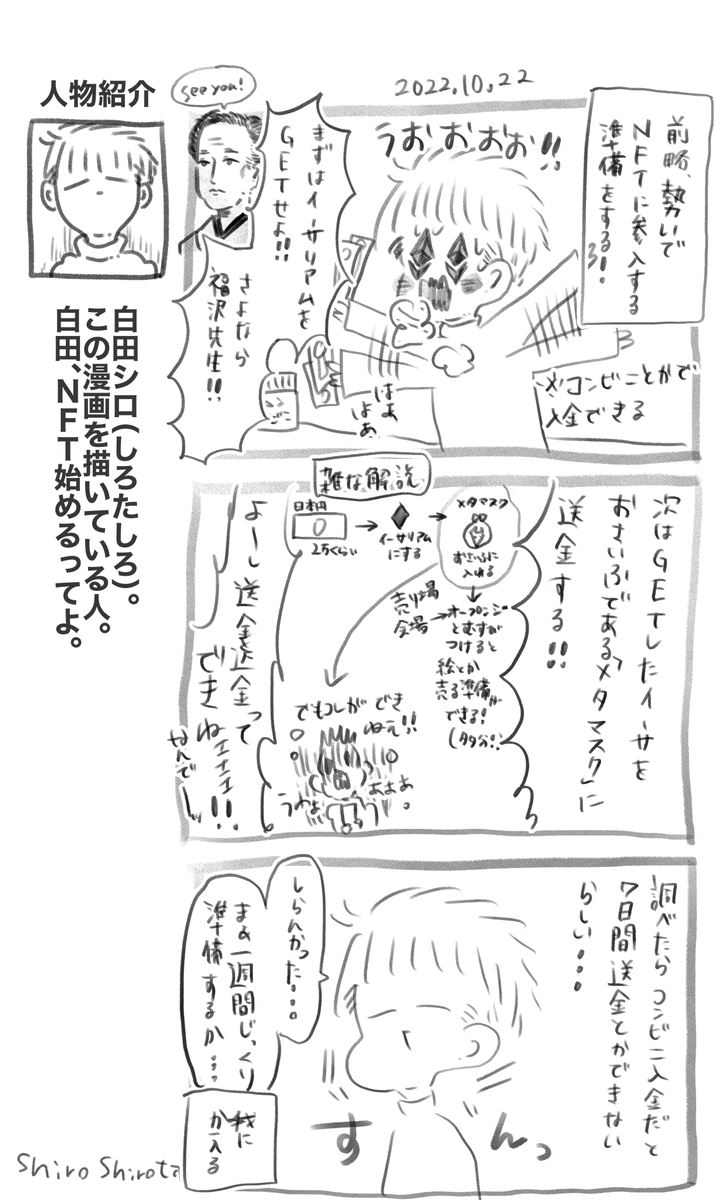 2022.10.22
人物紹介
白田シロ(しろたしろ)。
この漫画を描いている人。
白田、NFT始めるってよ。
前略、勢いで
NFTに参入する
準備をする!
うおおおお!!
まずはイーサリアムを
GETせよ!!
さよなら
福沢先生!!
see you!
はぁ
はぁ
※コンビニとかで
入金できる
次はGETしたイーサを
おさいふである「メタマスク」に
送金する!!
雑な解説
日本円
2万くらい
イーサリアム
にする
メタマスク
おさいふに
入れる
売り場
会場
オープンシー
とむすび
つけると
絵とか
売る準備が
できる!
(多分!!
でもコレが でき
ねぇ!!
うわぁ
あぁぁぁ。
よーし送金送金って
できねェェェェ!!
なんでー
調べたらコンビニ入金だと
7日間送金とかできない
らしい…
しらんかった…
まぁ一週間じっくり
準備するか…
すんっ
我に
かえる
Shiro Shirota